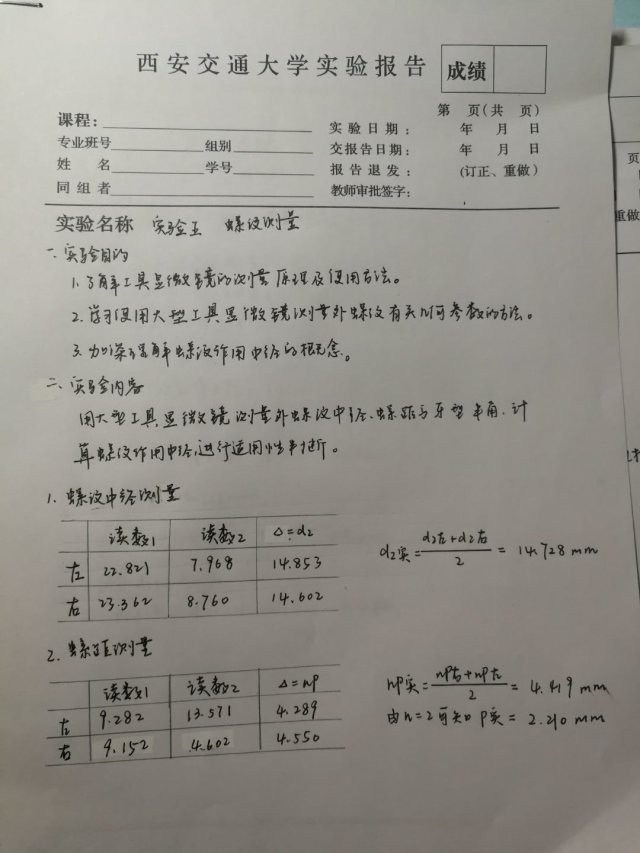 西安交通大学实验报告 成绩
第 页(共 页)
课程:
实验日期: 年 月 日
专业班号 组别
交报告日期: 年 月 日
姓名 学号
报告退发: (订正、重做)
同组者
教师审批签字:
实验名称 实验五 螺纹测量
一. 实验目的
1. 了解工具显微镜的测量原理及使用方法。
2. 学习使用大型工具显微镜测量外螺纹有关几何参数的方法。
3. 加深理解螺纹作用中径的概念。
二. 实验内容
用大型工具显微镜测量外螺纹中径、螺距与牙型半角,计
算螺纹作用中径,进行适用性判断。
1. 螺纹中径测量
读数1 读数2 Δ=d2
左 22.821 7.968 14.853
右 23.362 8.760 14.602
d2实=(d2左+d2右)/2 = 14.728 mm
2. 螺距测量
读数1 读数2 Δ=np
左 9.282 13.571 4.289
右 9.152 4.602 4.550
np实=(np右+np左)/2 = 4.419 mm
由n=2可知 P实= 2.210 mm
页
重做